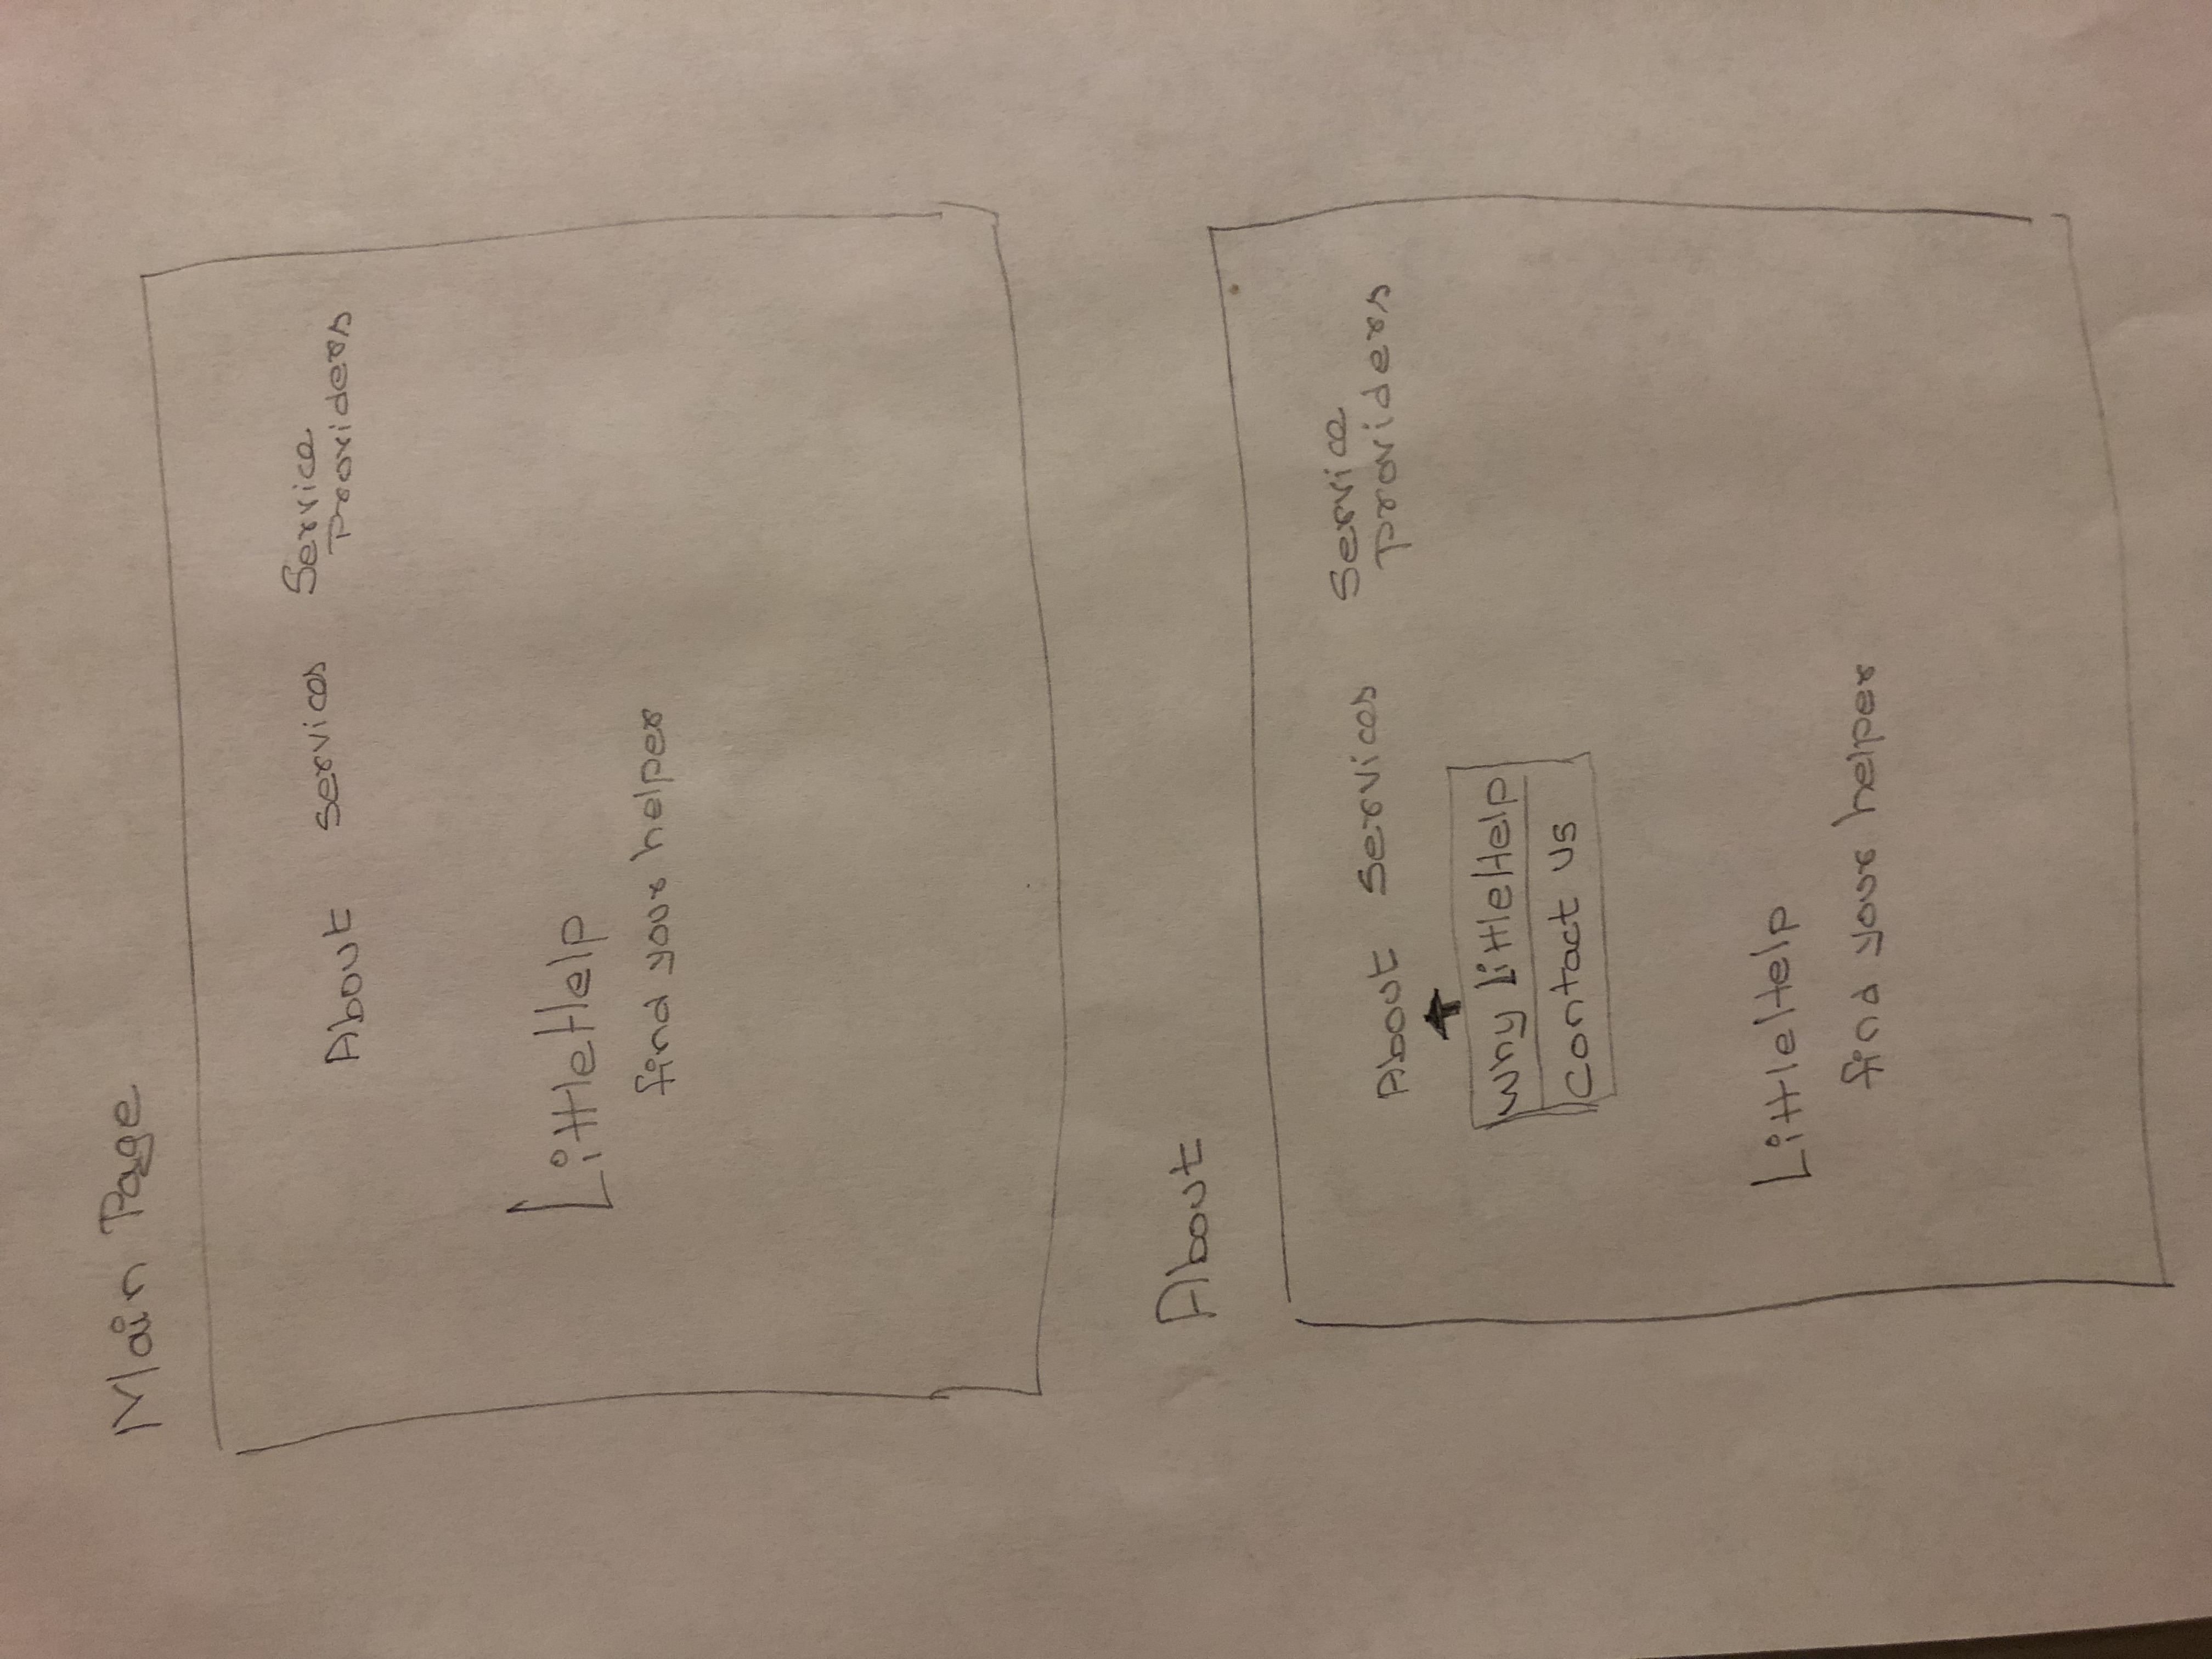 Main Page
About services Service
Providers
LittleHelp
find your helper
About
About Services Service
providers
Why LittleHelp
Contact Us
LittleHelp
find your helper